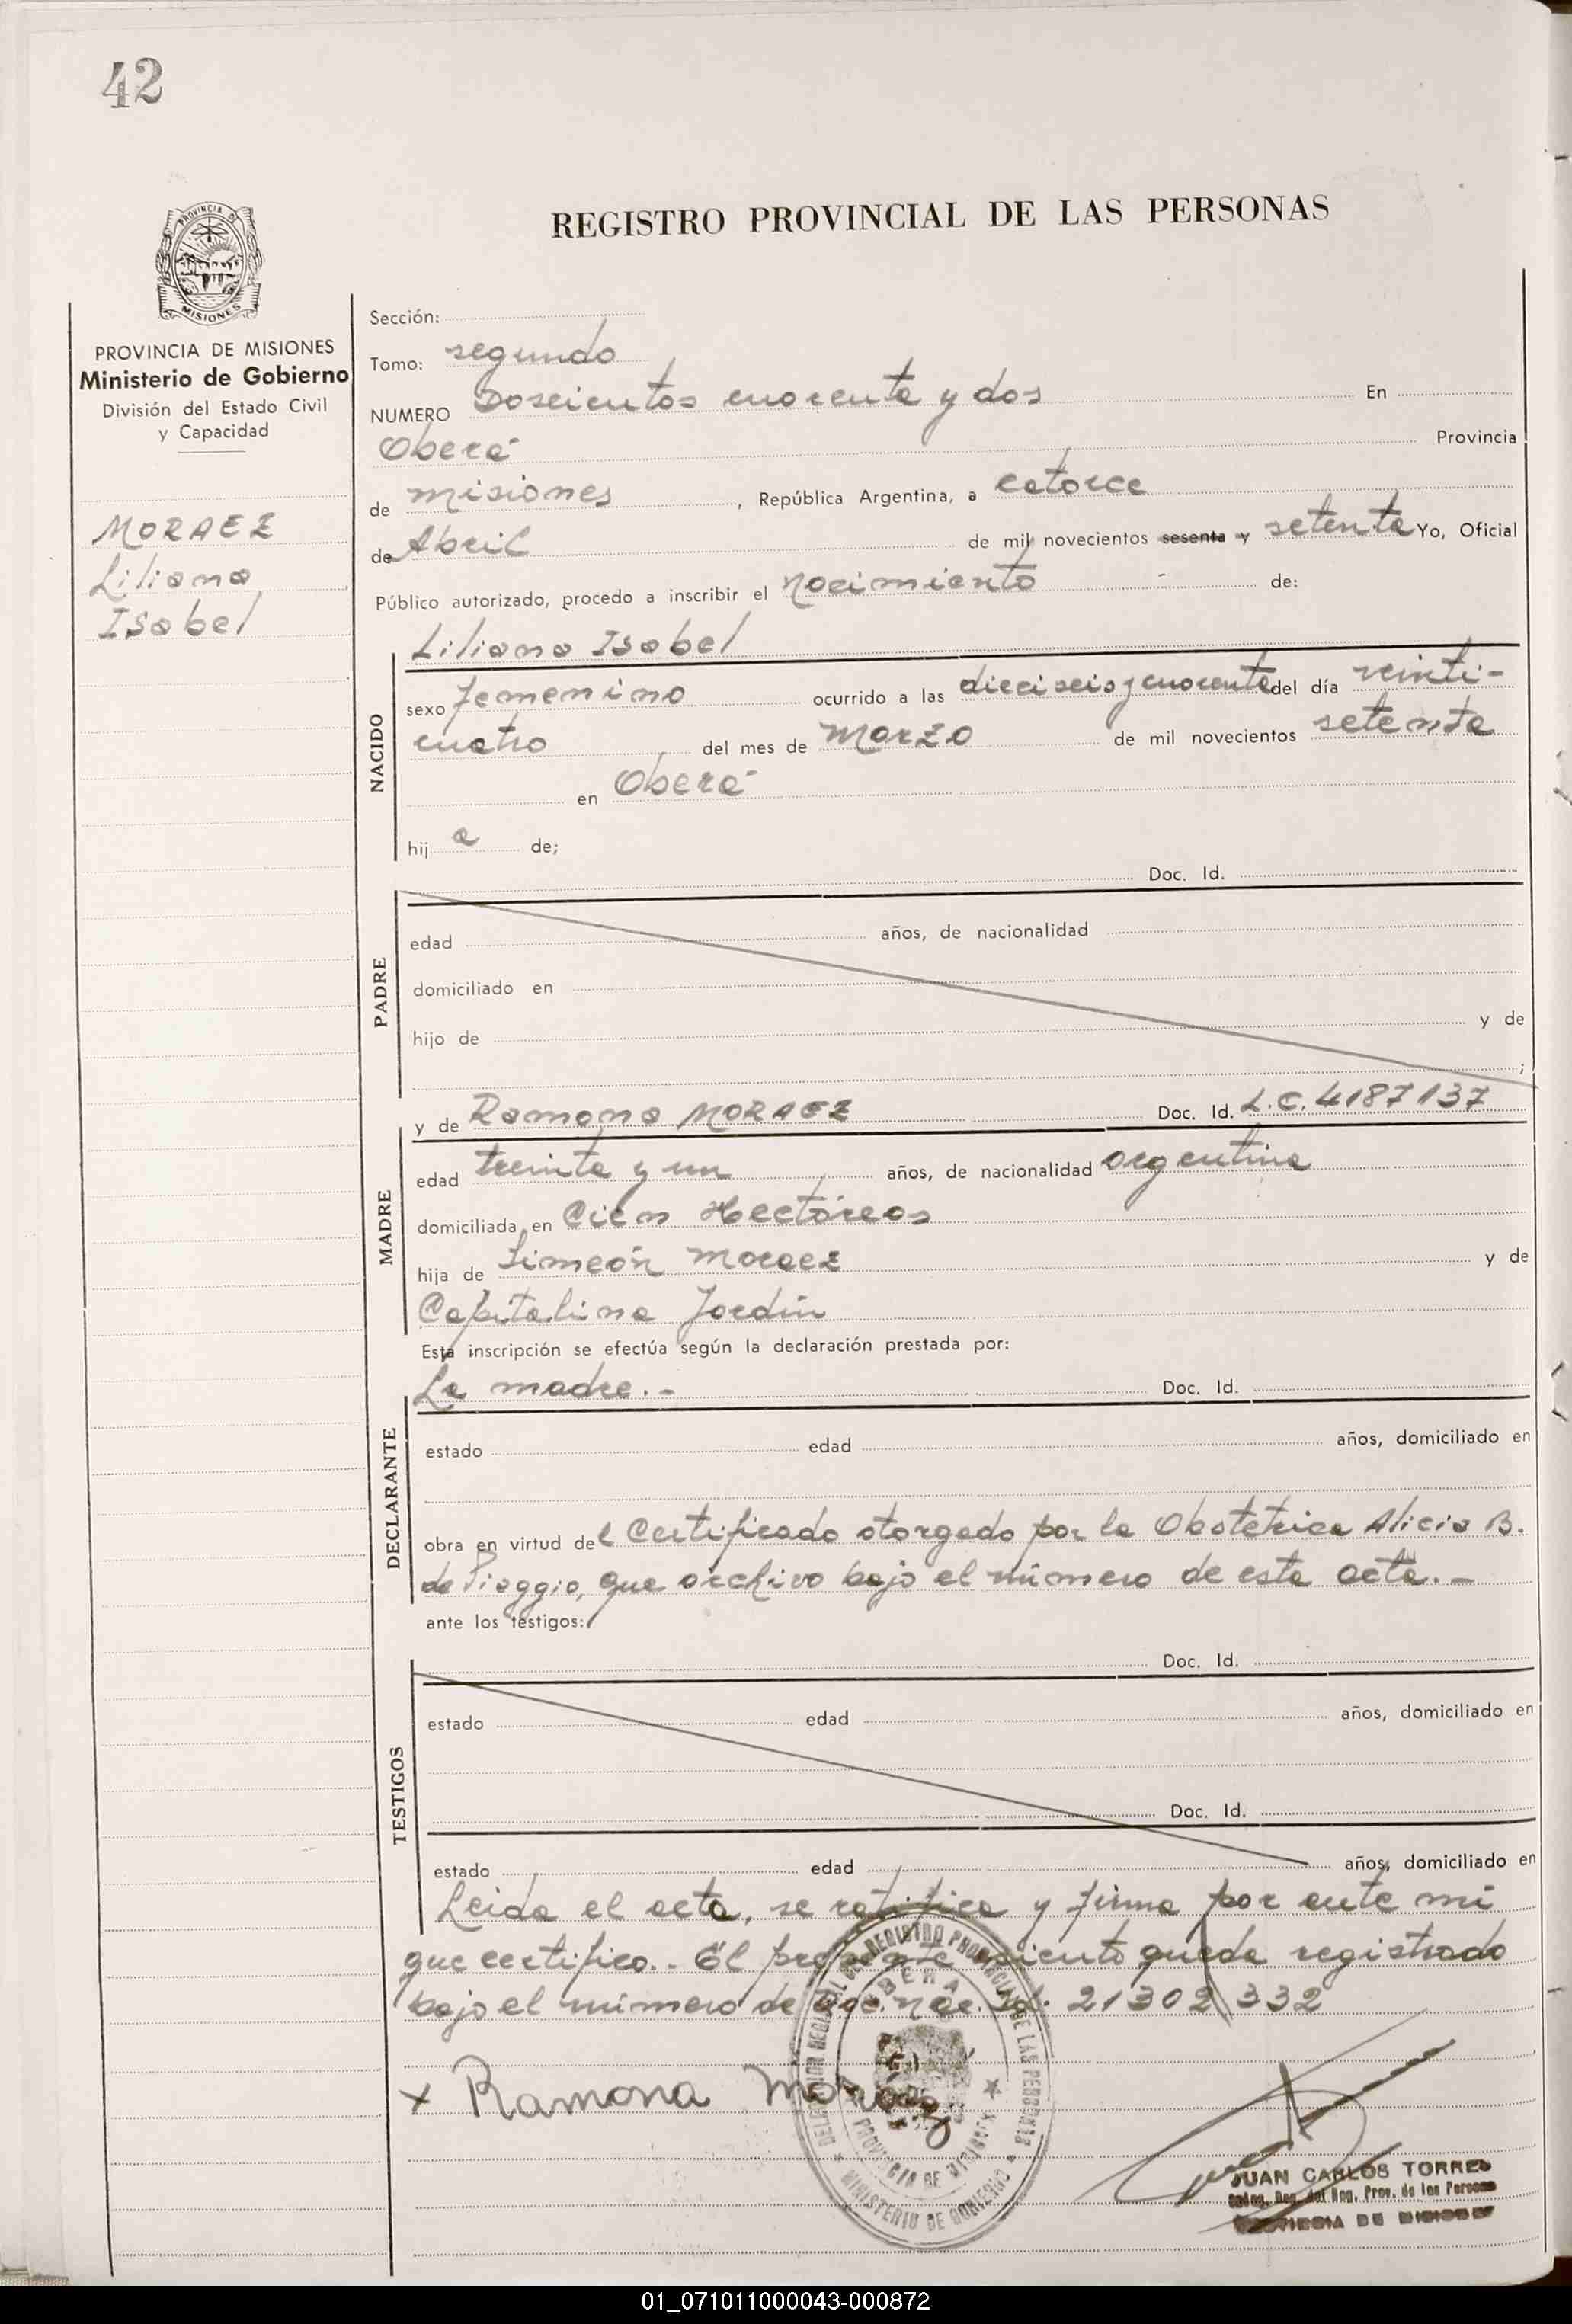 42
REGISTRO PROVINCIAL DE LAS PERSONAS
PROVINCIA DE
MISIONES
PROVINCIA DE MISIONES
Ministerio de Gobierno
División del Estado Civil
y Capacidad
MORAEZ
Liliana
Isabel
Sección:
Tomo: segundo
NUMERO Doscientos cuarenta y dos En
Oberá Provincia
de misiones, República Argentina, a catorce
de Abril de mil novecientos sesenta y setenta Yo, Oficial
Público autorizado, procedo a inscribir el nacimiento de:
Liliana Isabel
NACIDO
sexo femenino ocurrido a las dieciseis y cuarenta del día veinti-
cuatro del mes de Marzo de mil novecientos setenta
en Oberá
hij a de;
PADRE
Doc. Id.
edad años, de nacionalidad
domiciliado en
hijo de y de
;
MADRE
y de Ramona MORAEZ Doc. Id. L.C. 4187137
edad treinta y un años, de nacionalidad argentina
domiciliada en Cien Hectáreas
hija de Simeón Moraez y de
Capitalina Jordín
Esta inscripción se efectúa según la declaración prestada por:
DECLARANTE
La madre.- Doc. Id.
estado edad años, domiciliado en
obra en virtud del Certificado otorgado por la Obstetrica Alicia B.
de Piaggio, que archivo bajo el número de esta acta.-
ante los testigos:
TESTIGOS
Doc. Id.
estado edad años, domiciliado en
Doc. Id.
estado edad años, domiciliado en
Leida el acta, se ratifica y firma por ante mi
que certifico.. El presente asiento queda registrado
bajo el número de Doc. Nac. Id. 21302332
x Ramona Moraez
DELEGACION REGIONAL DEL REGISTRO PROVINCIAL DE LAS PERSONAS
OBERA
PROVINCIA DE MISIONES
MINISTERIO DE GOBIERNO
JUAN CARLOS TORRES
Reg. del Reg. Prov. de las Personas
PROVINCIA DE MISIONES
01_071011000043-000872